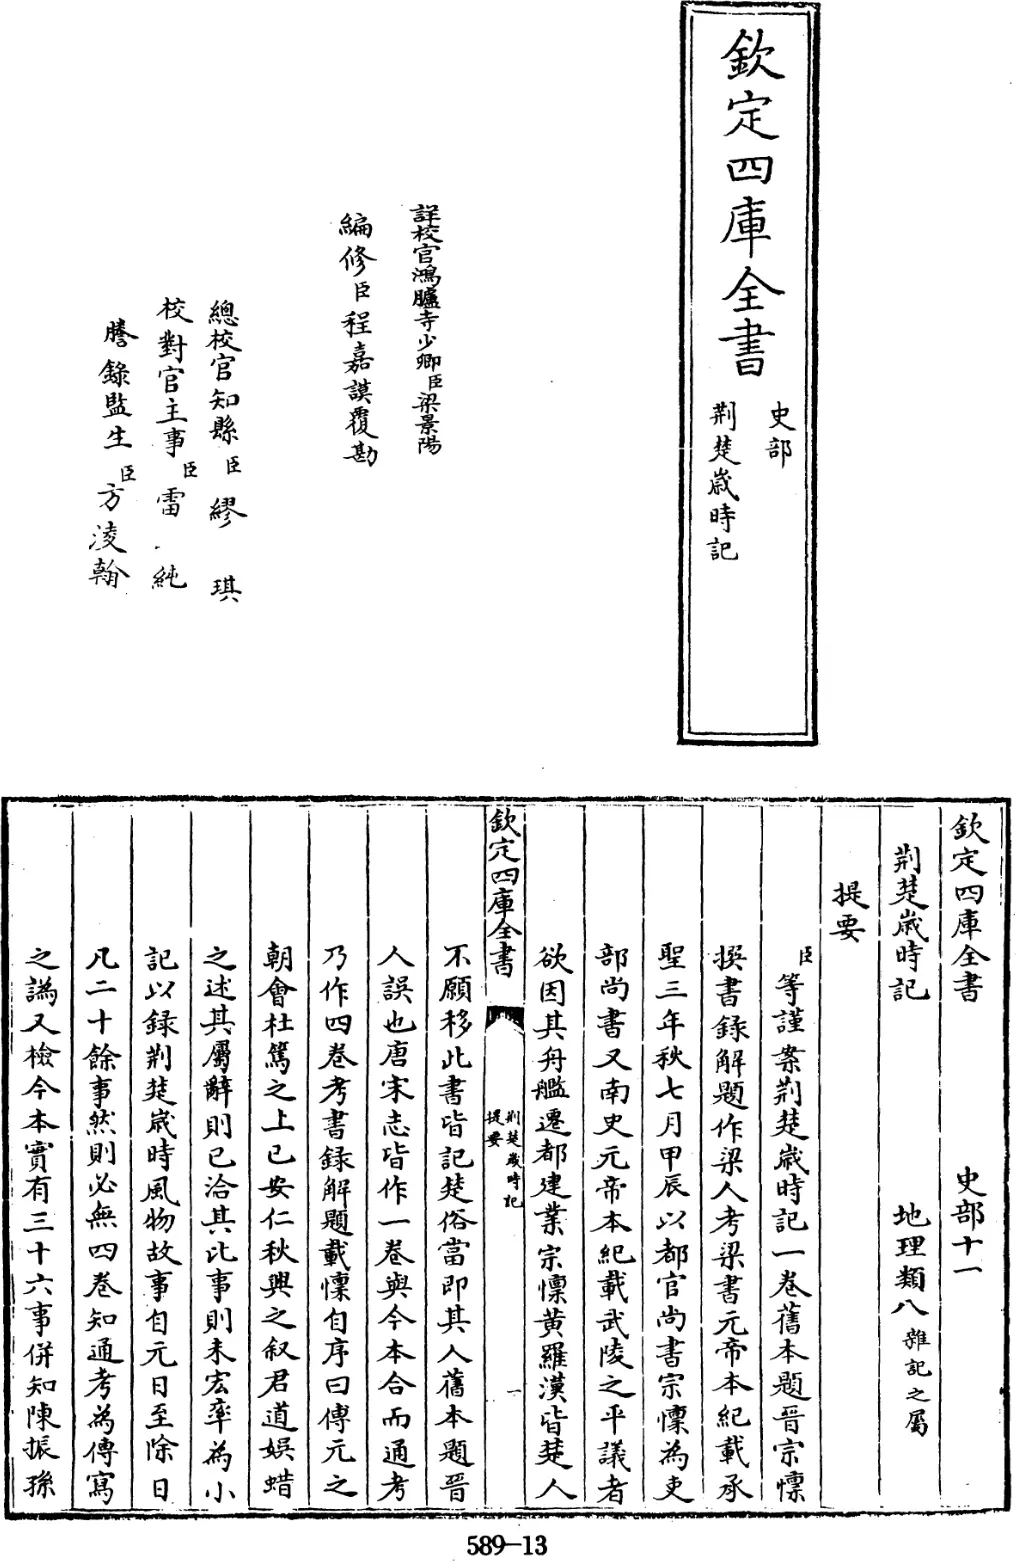 欽定四庫全書
史部
荆楚歲時記
詳校官鴻臚寺少卿臣梁景陽
編修臣程嘉謨覆勘
總校官知縣臣繆琪
校對官主事臣雷純
謄錄監生臣方淩翰
欽定四庫全書 史部十一
荆楚歲時記 地理類八雜記之屬
提要
臣等謹案荆楚歲時記一卷舊本題晉宗懍
撰書錄解題作梁人考梁書元帝本紀載承
聖三年秋七月甲辰以都官尚書宗懍為吏
部尚書又南史元帝本紀載武陵之平議者
欲因其舟艦遷都建業宗懍黄羅漢皆楚人
欽定四庫全書
荆楚歲時記
提要
一
不願移此書皆記楚俗當即其人舊本題晉
人誤也唐宋志皆作一卷與今本合而通考
乃作四卷考書録解題載懍自序曰傅元之
朝會杜篤之上巳安仁秋興之叙君道娱蜡
之述其屬辭則已洽其比事則未宏率為小
記以録荆楚歲時風物故事自元日至除日
凡二十餘事然則必無四卷知通考為傳寫
之譌又檢今本實有三十六事併知陳振孫
589-13